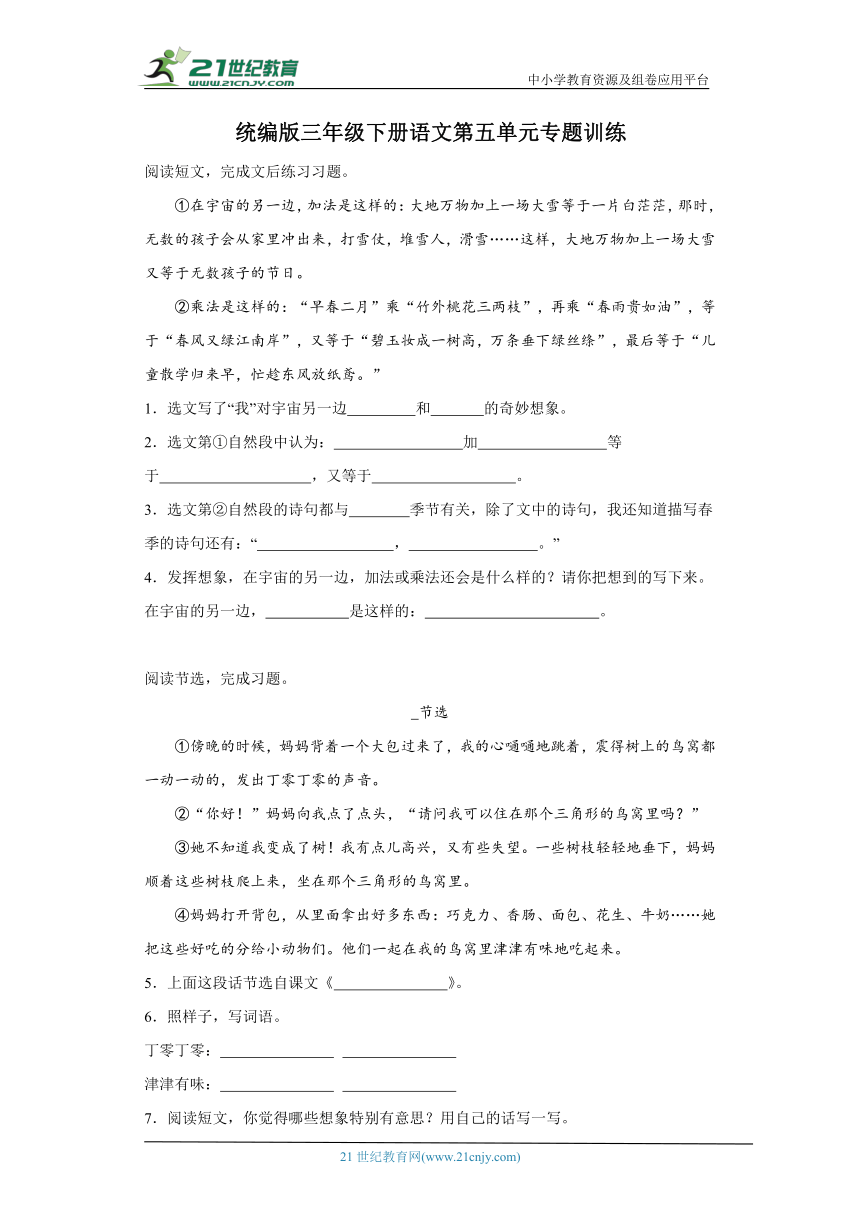 21世纪教育
WWW.21CNJY.COM
中小学教育资源及组卷应用平台
统编版三年级下册语文第五单元专题训练
阅读短文，完成文后练习习题。
①在宇宙的另一边，加法是这样的：大地万物加上一场大雪等于一片白茫茫，那时，
无数的孩子会从家里冲出来，打雪仗，堆雪人，滑雪……这样，大地万物加上一场大雪
又等于无数孩子的节日。
②乘法是这样的：“早春二月”乘“竹外桃花三两枝”，再乘“春雨贵如油”，等
于“春风又绿江南岸”，又等于“碧玉妆成一树高，万条垂下绿丝绦”，最后等于“儿
童散学归来早，忙趁东风放纸鸢。”
1．选文写了“我”对宇宙另一边_________和_______的奇妙想象。
2．选文第①自然段中认为：_________________加_________________等
于____________________，又等于___________________。
3．选文第②自然段的诗句都与________季节有关，除了文中的诗句，我还知道描写春
季的诗句还有：“__________________，_________________。”
4．发挥想象，在宇宙的另一边，加法或乘法还会是什么样的？请你把想到的写下来。
在宇宙的另一边，___________是这样的：_______________________。
阅读节选，完成习题。
_节选
①傍晚的时候，妈妈背着一个大包过来了，我的心嗵嗵地跳着，震得树上的鸟窝都
一动一动的，发出丁零丁零的声音。
②“你好！”妈妈向我点了点头，“请问我可以住在那个三角形的鸟窝里吗？”
③她不知道我变成了树！我有点儿高兴，又有些失望。一些树枝轻轻地垂下，妈妈
顺着这些树枝爬上来，坐在那个三角形的鸟窝里。
④妈妈打开背包，从里面拿出好多东西：巧克力、香肠、面包、花生、牛奶……她
把这些好吃的分给小动物们。他们一起在我的鸟窝里津津有味地吃起来。
5．上面这段话节选自课文《_______________》。
6．照样子，写词语。
丁零丁零：_______________ _______________
津津有味：_______________ _______________
7．阅读短文，你觉得哪些想象特别有意思？用自己的话写一写。
21世纪教育网(www.21cnjy.com)